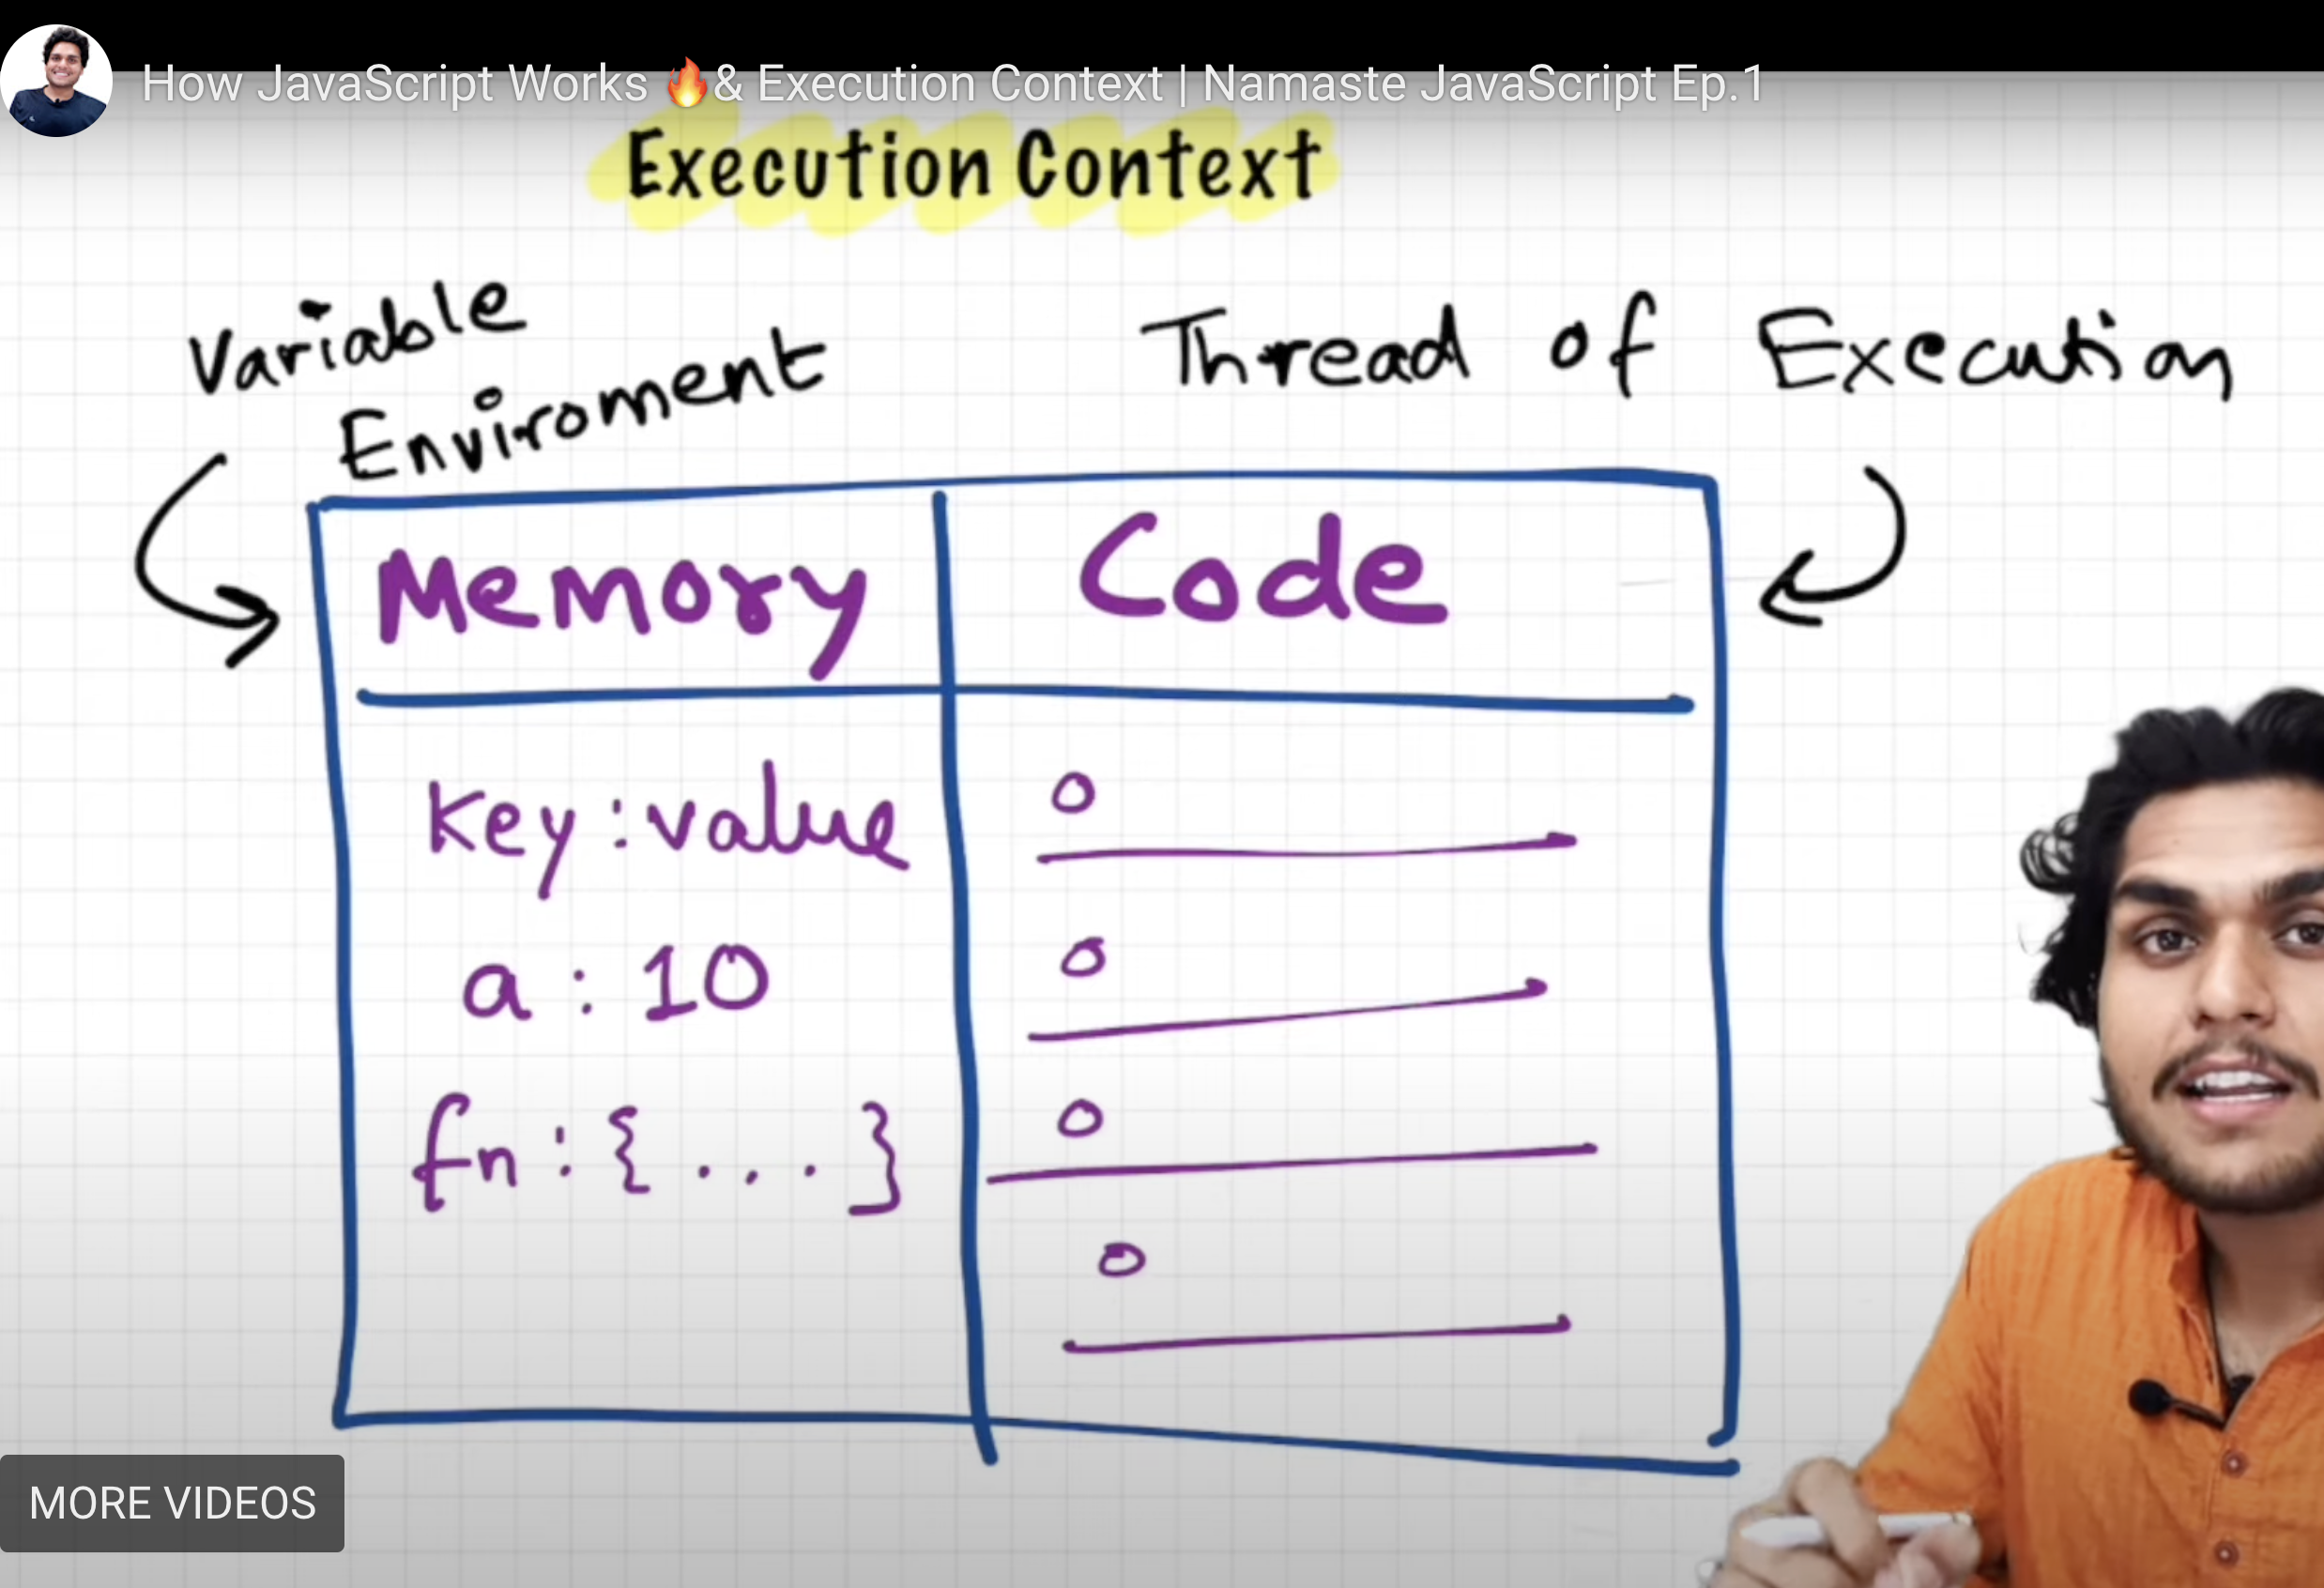 How JavaScript Works 🔥& Execution Context | Namaste JavaScript Ep.1
Execution Context
Variable
Enviroment
Thread of Execution
Memory
Code
key : value
a : 10
fn : { . . . }
MORE VIDEOS